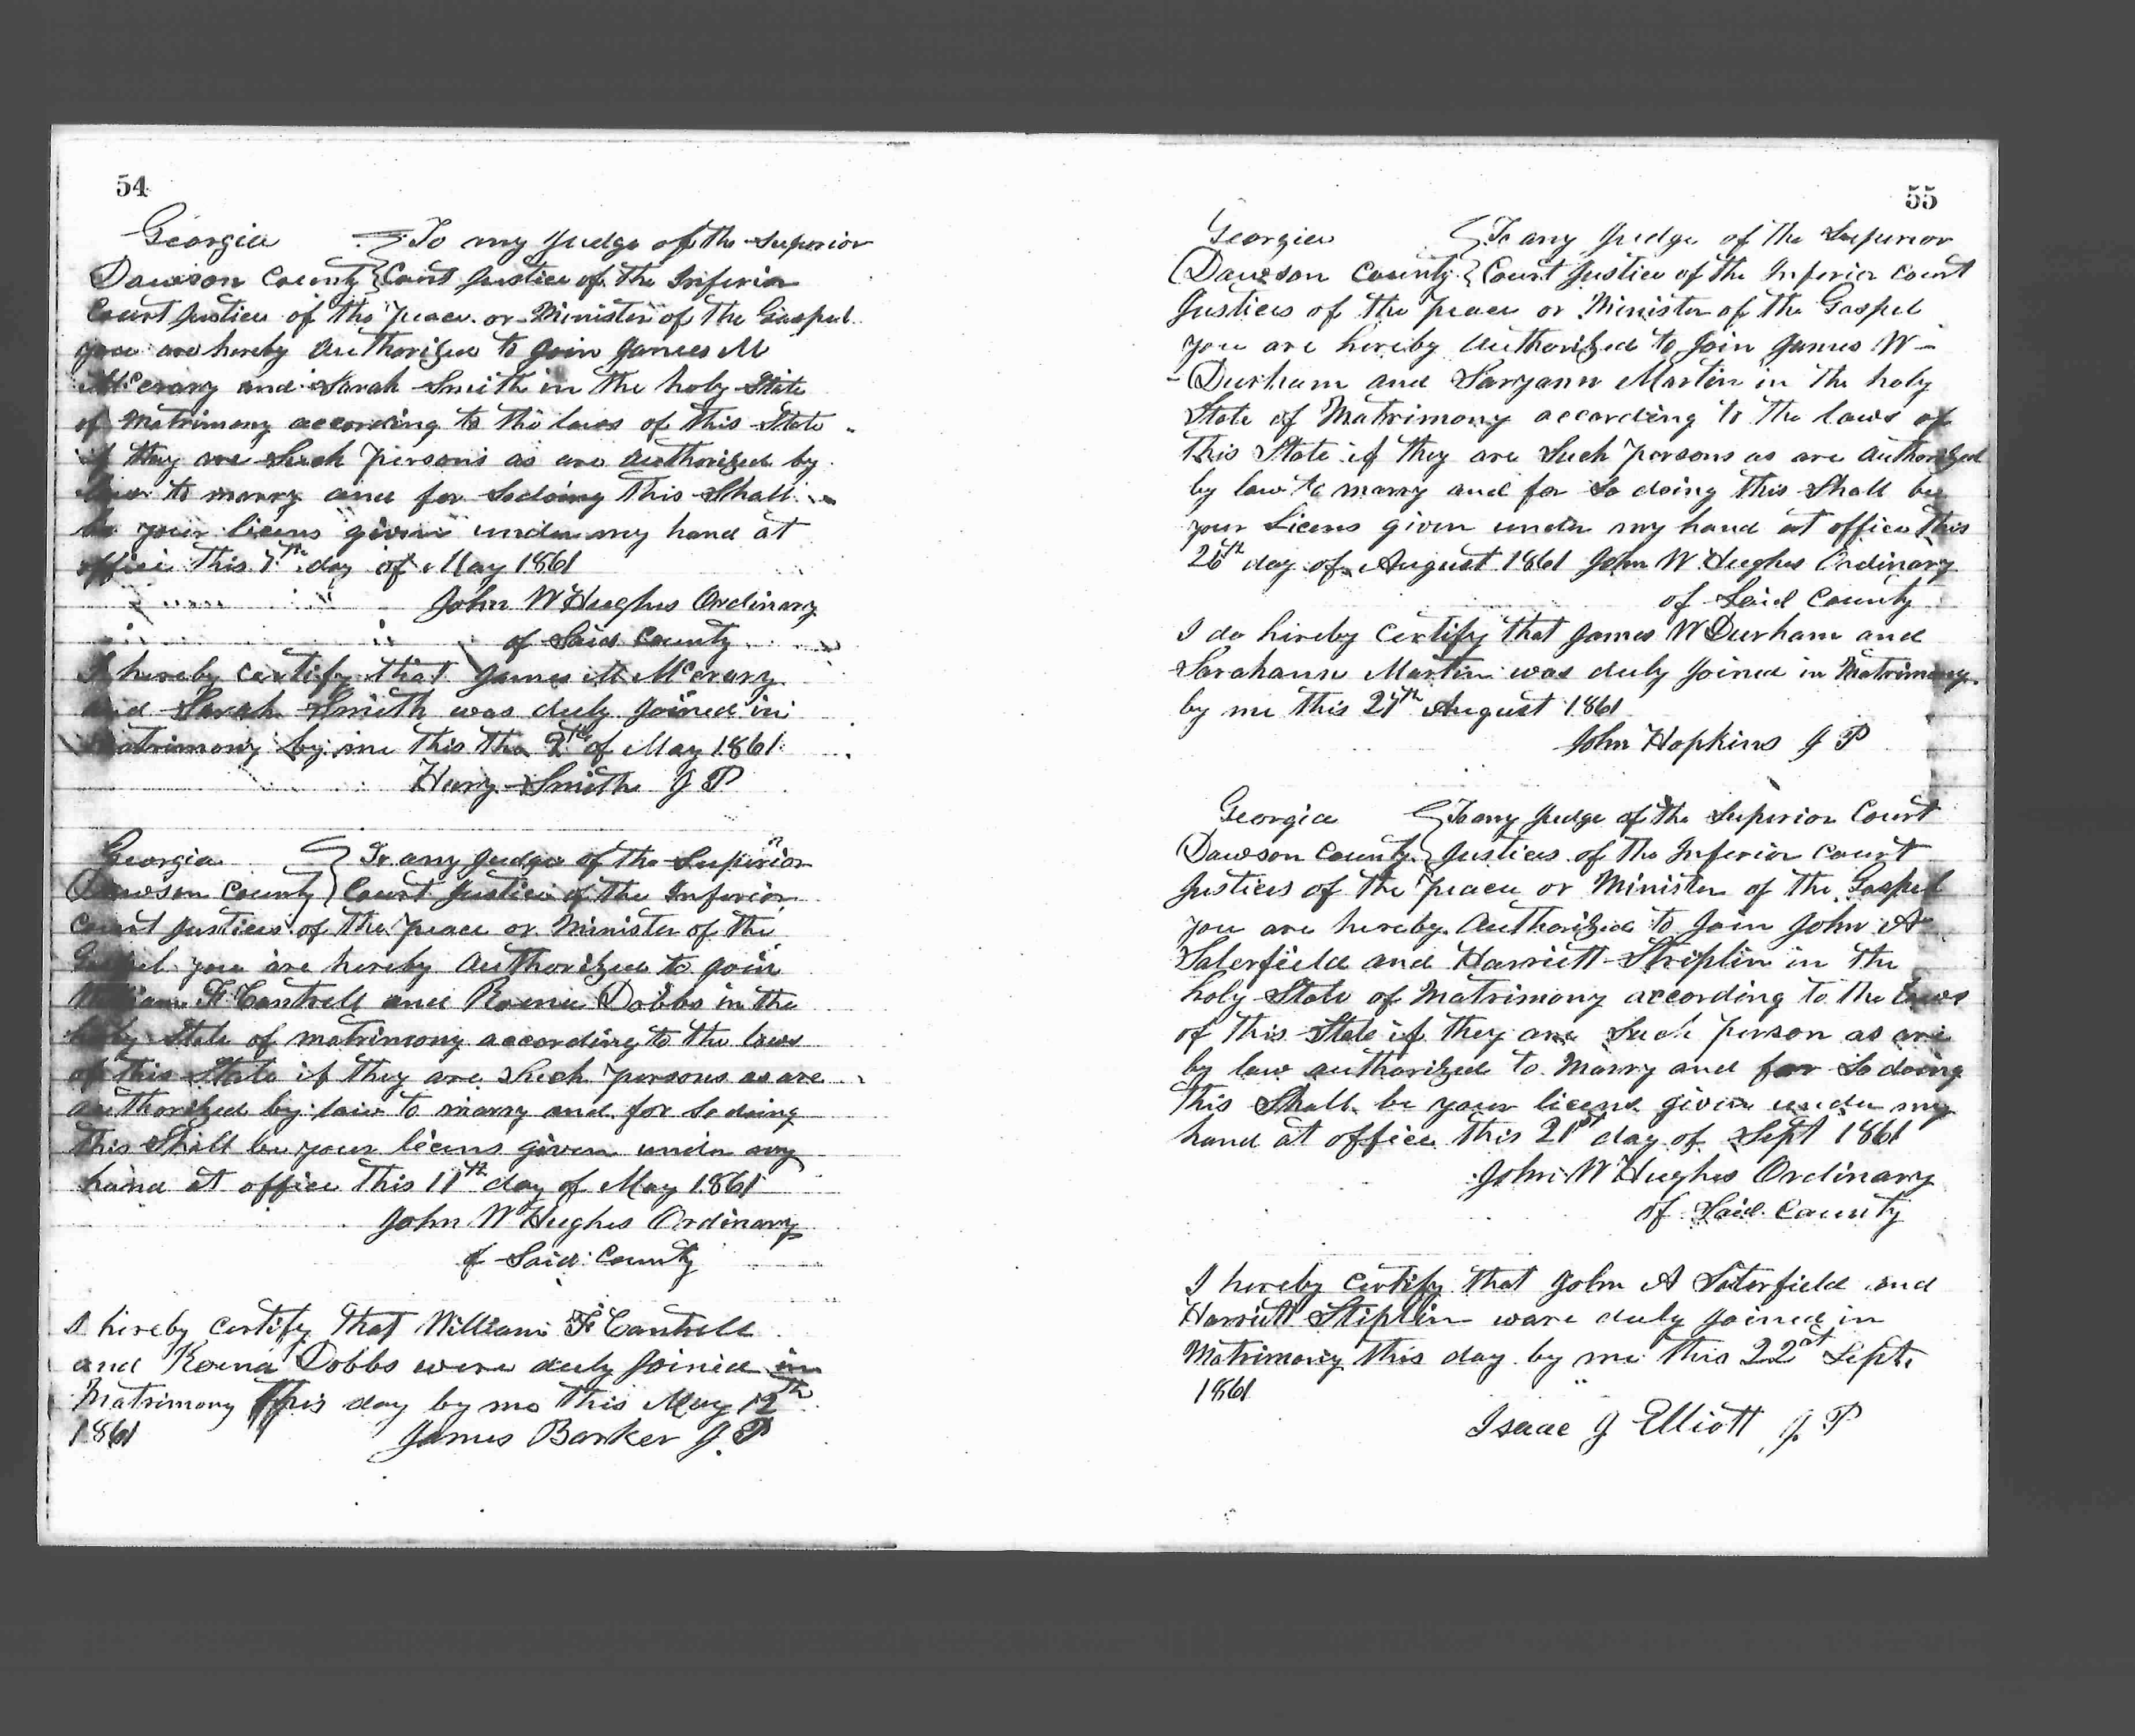 54
Georgia } To any Judge of the Superior
Dawson County } Court Justice of the Inferior
Court Justices of the Peace or Minister of the Gospel
you are hereby authorized to Join James M
McCrary and Sarah Smith in the holy State
of Matrimony according to the laws of this State
if they are Such Persons as are authorized by
law to marry and for So doing this Shall
be your licens given under my hand at
office this 7th day of May 1861
John W Hughes Ordinary
of Said County
I hereby certify that James M McCrary
and Sarah Smith was duly Joined in
Matrimony by me this the 9th of May 1861
Smith J P
Georgia } To any Judge of the Superior
Dawson County } Court Justice of the Inferior
Court Justices of the Peace or Minister of the
Gospel you are hereby authorized to Join
William F Cantrell and Roena Dobbs in the
holy State of matrimony according to the laws
of this State if they are Such Persons as are
authorized by law to marry and for So doing
this Shall be your licens given under my
hand at office this 11th day of May 1861
John W Hughes Ordinary
of Said County
I hereby certify that William F Cantrell
and Roena Dobbs were duly Joined in
Matrimony this day by me this May 12th
1861 James Barker J. P
55
Georgia } To any Judge of the Superior
Dawson County } Court Justice of the Inferior Court
Justices of the Peace or Minister of the Gospel
you are hereby authorized to Join James W
Durham and Saryann Martin in the holy
State of Matrimony according to the laws of
this State if they are Such Persons as are authorized
by law to marry and for So doing this Shall be
your Licens given under my hand at office this
26th day of August 1861 John W Hughes Ordinary
of Said County
I do hereby Certify that James W Durham and
Sarahann Martin was duly Joined in Matrimony
by me this 27th August 1861
John Hopkins J P
Georgia } To any Judge of the Superior Court
Dawson County } Justices of the Inferior Court
Justices of the Peace or Minister of the Gospel
you are hereby authorized to Join John A
Saterfield and Harriett Striplin in the
holy State of Matrimony according to the Laws
of this State if they are Such Person as are
by law authorized to Marry and for So doing
this Shall be your licens given under my
hand at office this 21st day of Sept 1861
John W Hughes Ordinary
of Said County
I hereby Certify that John A Saterfield and
Harriett Stiplin ware duly Joined in
Matrimony this day by me this 22nt Sept.
1861
Isaac J Elliott J. P